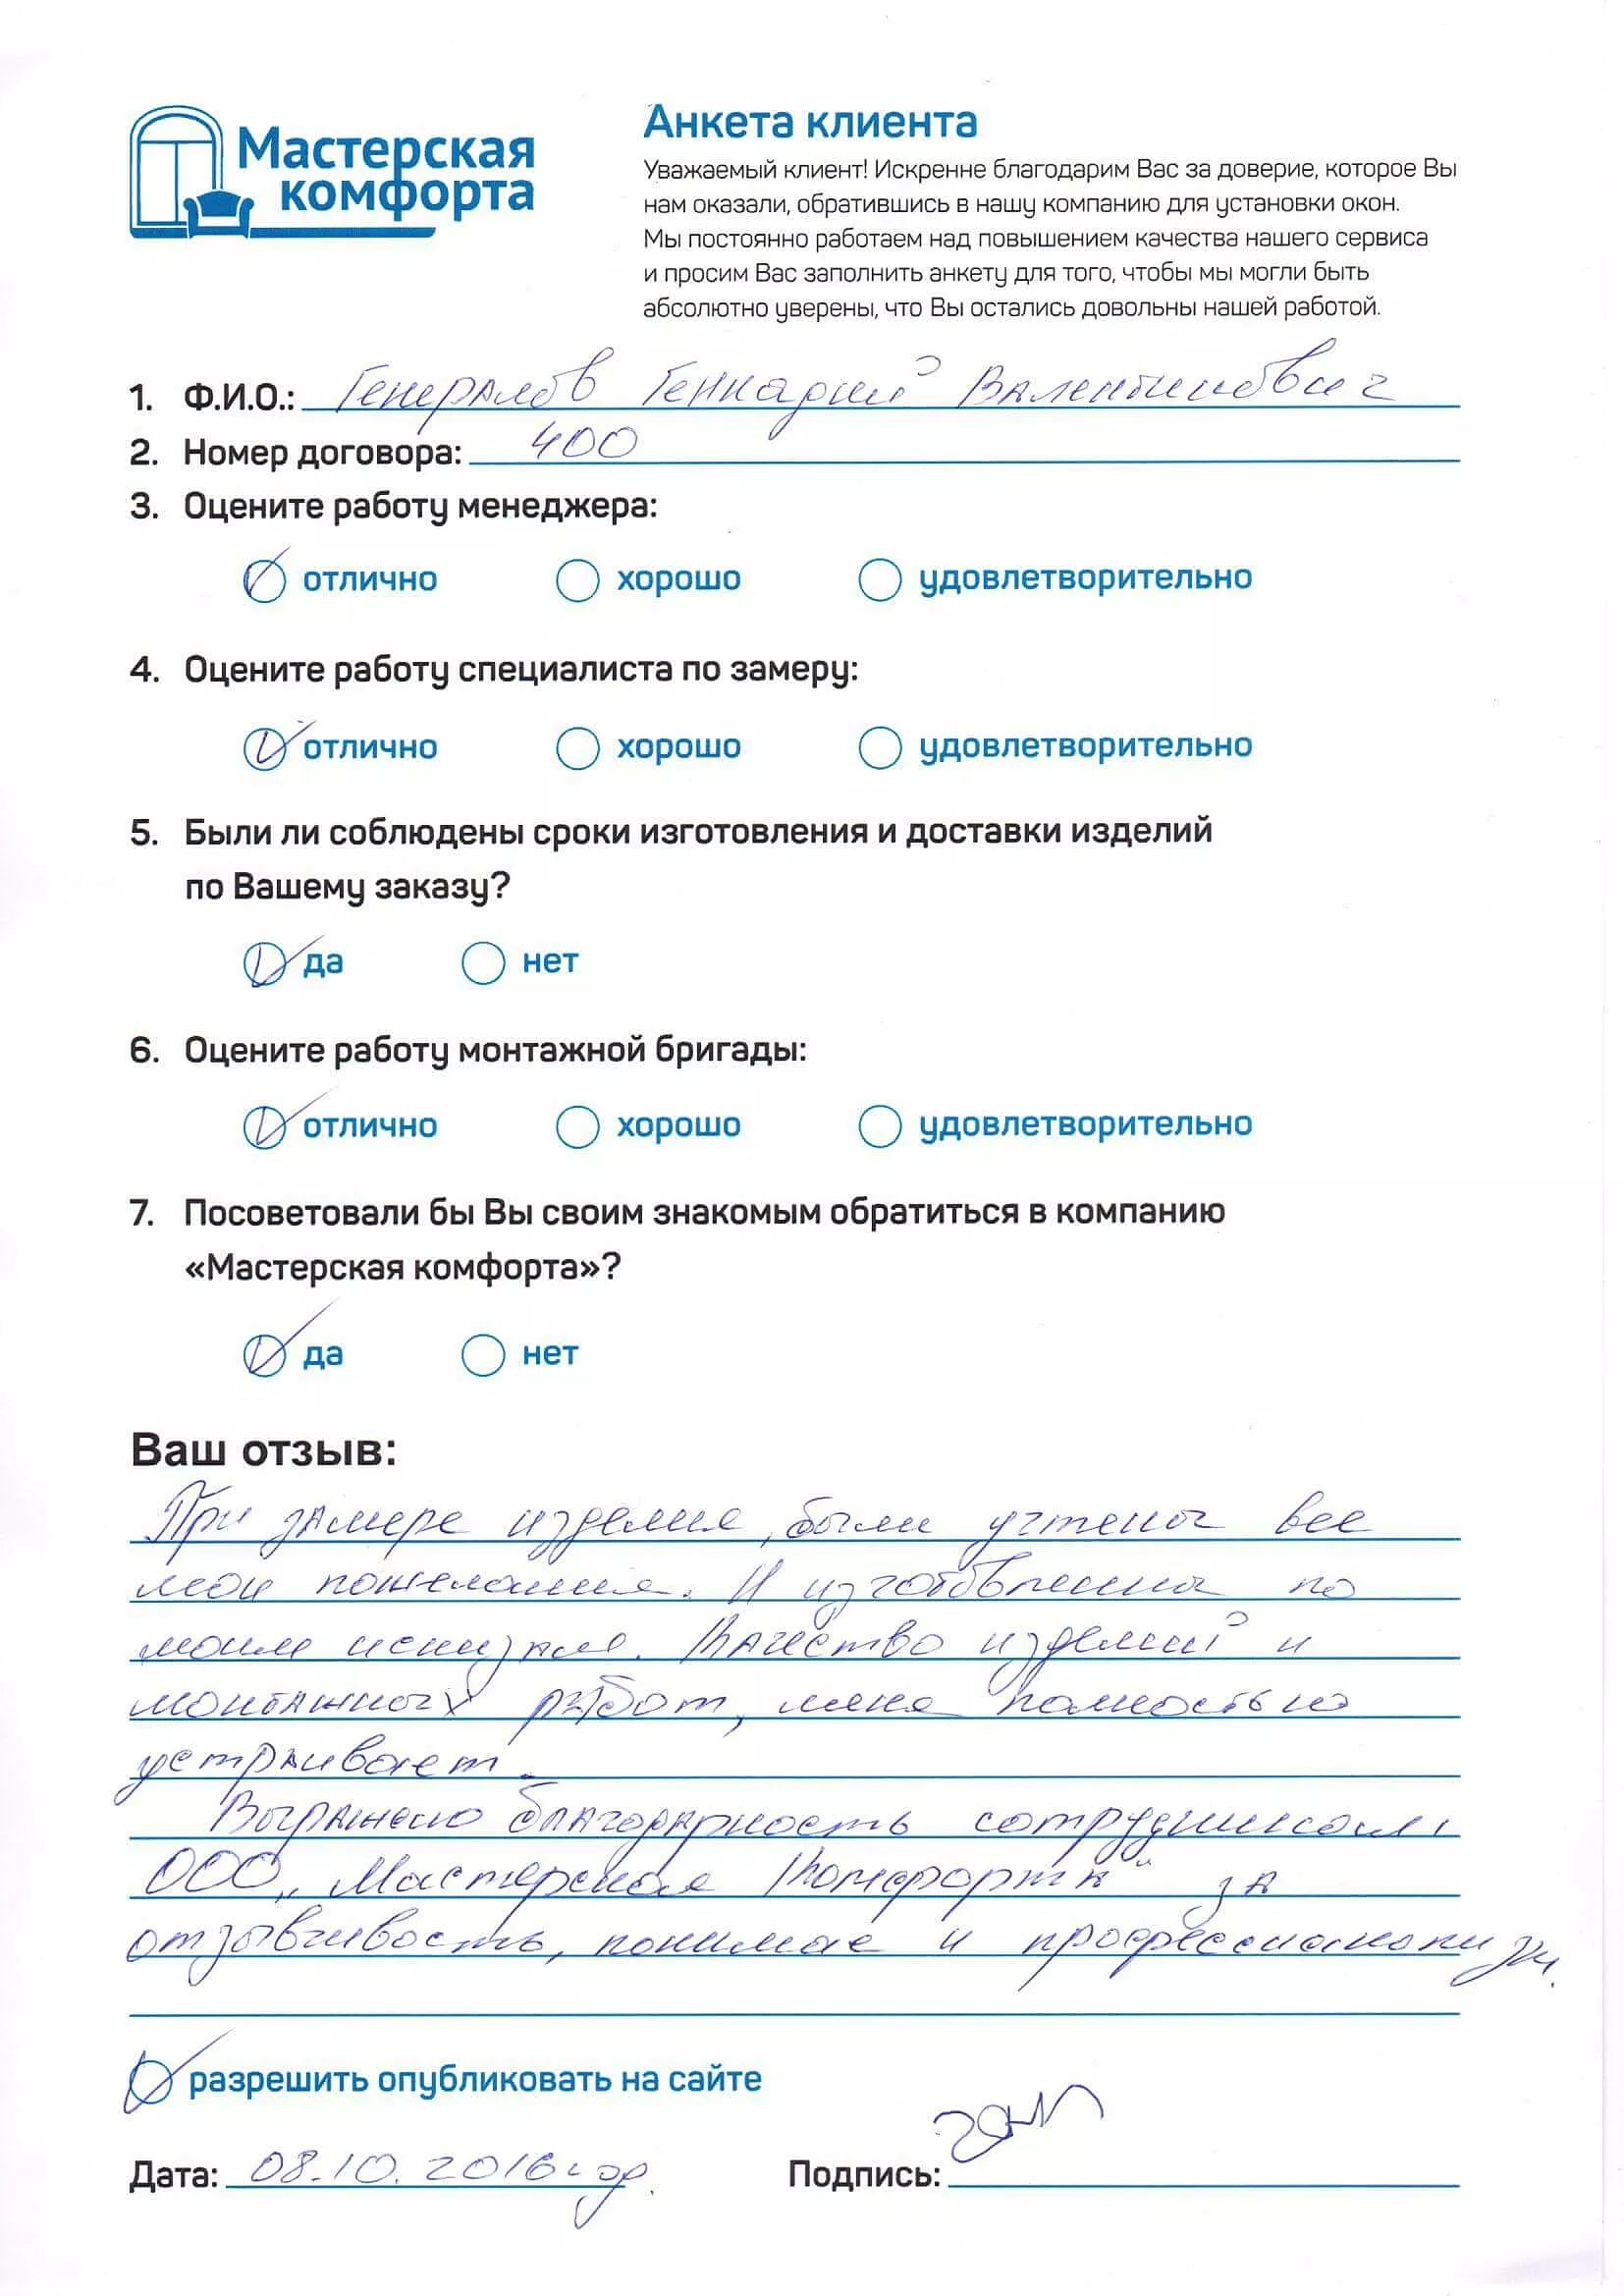 Мастерская
комфорта
Анкета клиента
Уважаемый клиент! Искренне благодарим Вас за доверие, которое Вы
нам оказали, обратившись в нашу компанию для установки окон.
Мы постоянно работаем над повышением качества нашего сервиса
и просим Вас заполнить анкету для того, чтобы мы могли быть
абсолютно уверены, что Вы остались довольны нашей работой.
1. Ф.И.О.: Генералов Геннадий Валентинович
2. Номер договора: 400
3. Оцените работу менеджера:
отлично хорошо удовлетворительно
4. Оцените работу специалиста по замеру:
отлично хорошо удовлетворительно
5. Были ли соблюдены сроки изготовления и доставки изделий
по Вашему заказу?
да нет
6. Оцените работу монтажной бригады:
отлично хорошо удовлетворительно
7. Посоветовали бы Вы своим знакомым обратиться в компанию
«Мастерская комфорта»?
да нет
Ваш отзыв:
При замере изделия, были учтены все
мои пожелания. И изготовленны по
моим эскизам. Качество изделий и
монтажных работ, меня полностью
устраивает.
Выражаю благодарность сотрудникам
ООО „Мастерская Комфорта" за
отзывчивость, понимае и профессионализм.
разрешить опубликовать на сайте
Дата: 08.10.2016 год. Подпись: